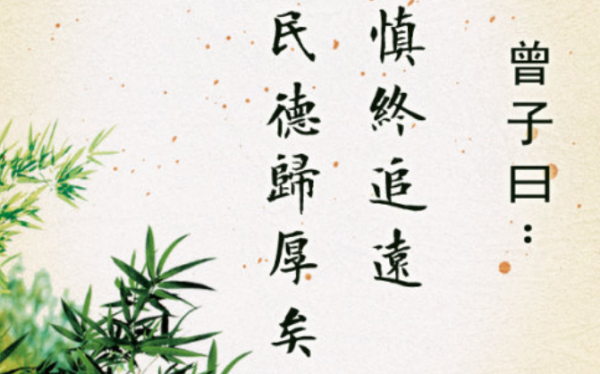 曾子曰：
慎終追遠
民德歸厚矣